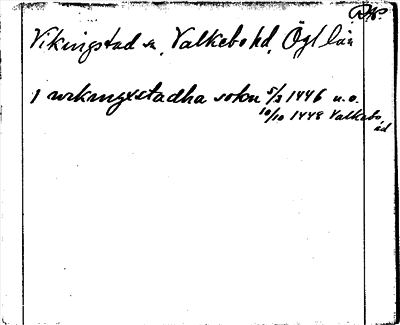 Vikingstad sn, Valkebo hd, Ögl län
J wikingxstadha sokn 5/3 1446 u.o.
10/10 1448 Valkebo